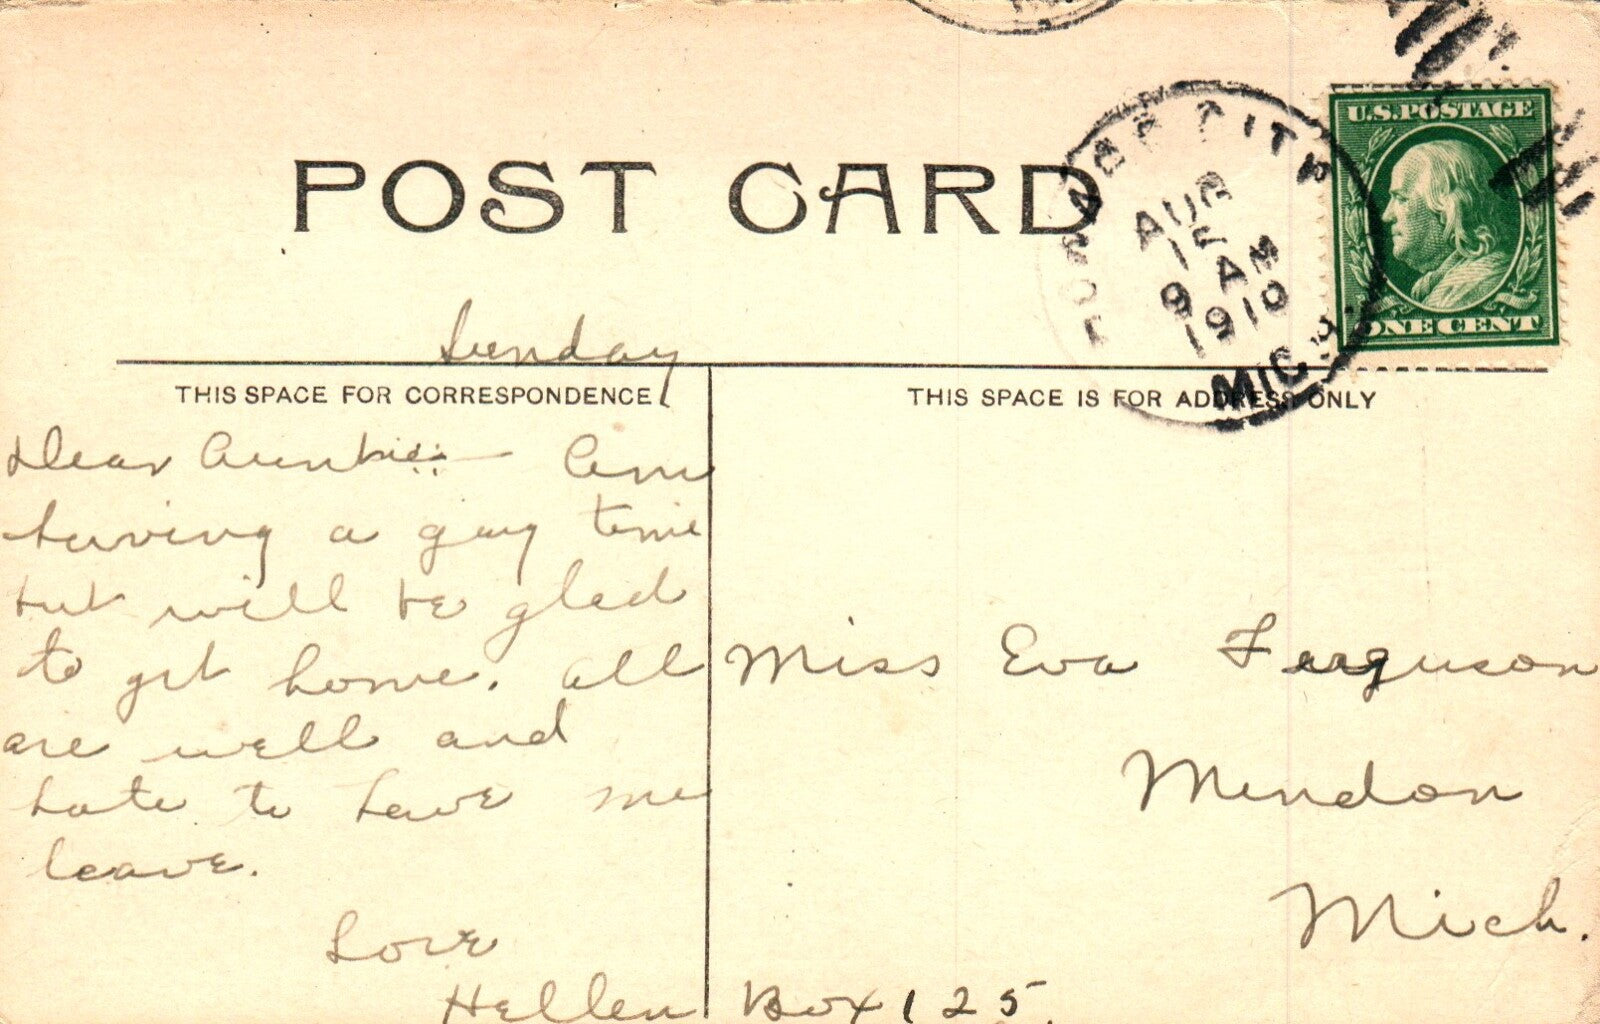 POST CARD
TRAVERSE CITY
AUG
15
9 A
1910
MICH.
U.S. POSTAGE
ONE CENT
Sunday
THIS SPACE FOR CORRESPONDENCE
THIS SPACE IS FOR ADDRESS ONLY
Dear Auntie:- Am
having a gay time
but will be glad
to get home. All
are well and
hate to have me
leave.
Love
Hellen
Miss Eva Ferguson
Mendon
Mich.
Box 125.